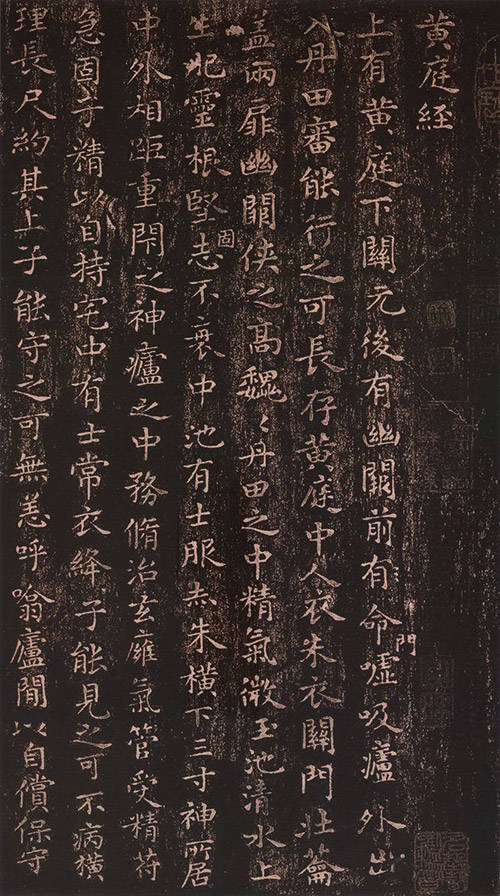 黄庭経
上有黄庭下關元後有幽闕前有命門噓吸廬外出
入丹田審能行之可長存黄庭中人衣朱衣關門壯蘥
盖兩扉幽闕俠之高巍〻丹田之中精氣微玉池清水上
生肥靈根堅固志不衰中池有士服赤朱横下三寸神所居
中外相距重閇之神廬之中務脩治玄廱氣管受精苻
急固子精以自持宅中有士常衣絳子能見之可不病橫
理長尺約其上子能守之可無恙呼噏廬間以自償保守